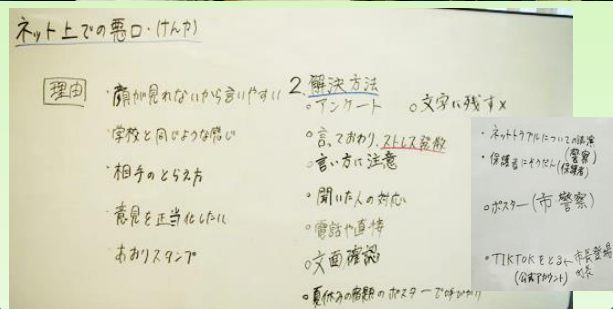 ネット上での悪口・けんか
理由
・顔が見れないから言いやすい
・学校と同じような感じ
・相手のとらえ方
・意見を正当化したい
・あおりスタンプ
2.解決方法
○アンケート ○文字に残す×
○言っておわり、ストレス発散
○言い方に注意
○聞いた人の対応
○電話や直接
○文面確認
○夏休みの宿題のポスターで呼びかけ
・ネットトラブルについての講演
(警察)
・保護者にそうだん(保護者)
○ポスター(市警察)
○TIKTOKをとる← 市長登場
(公式アカウント)